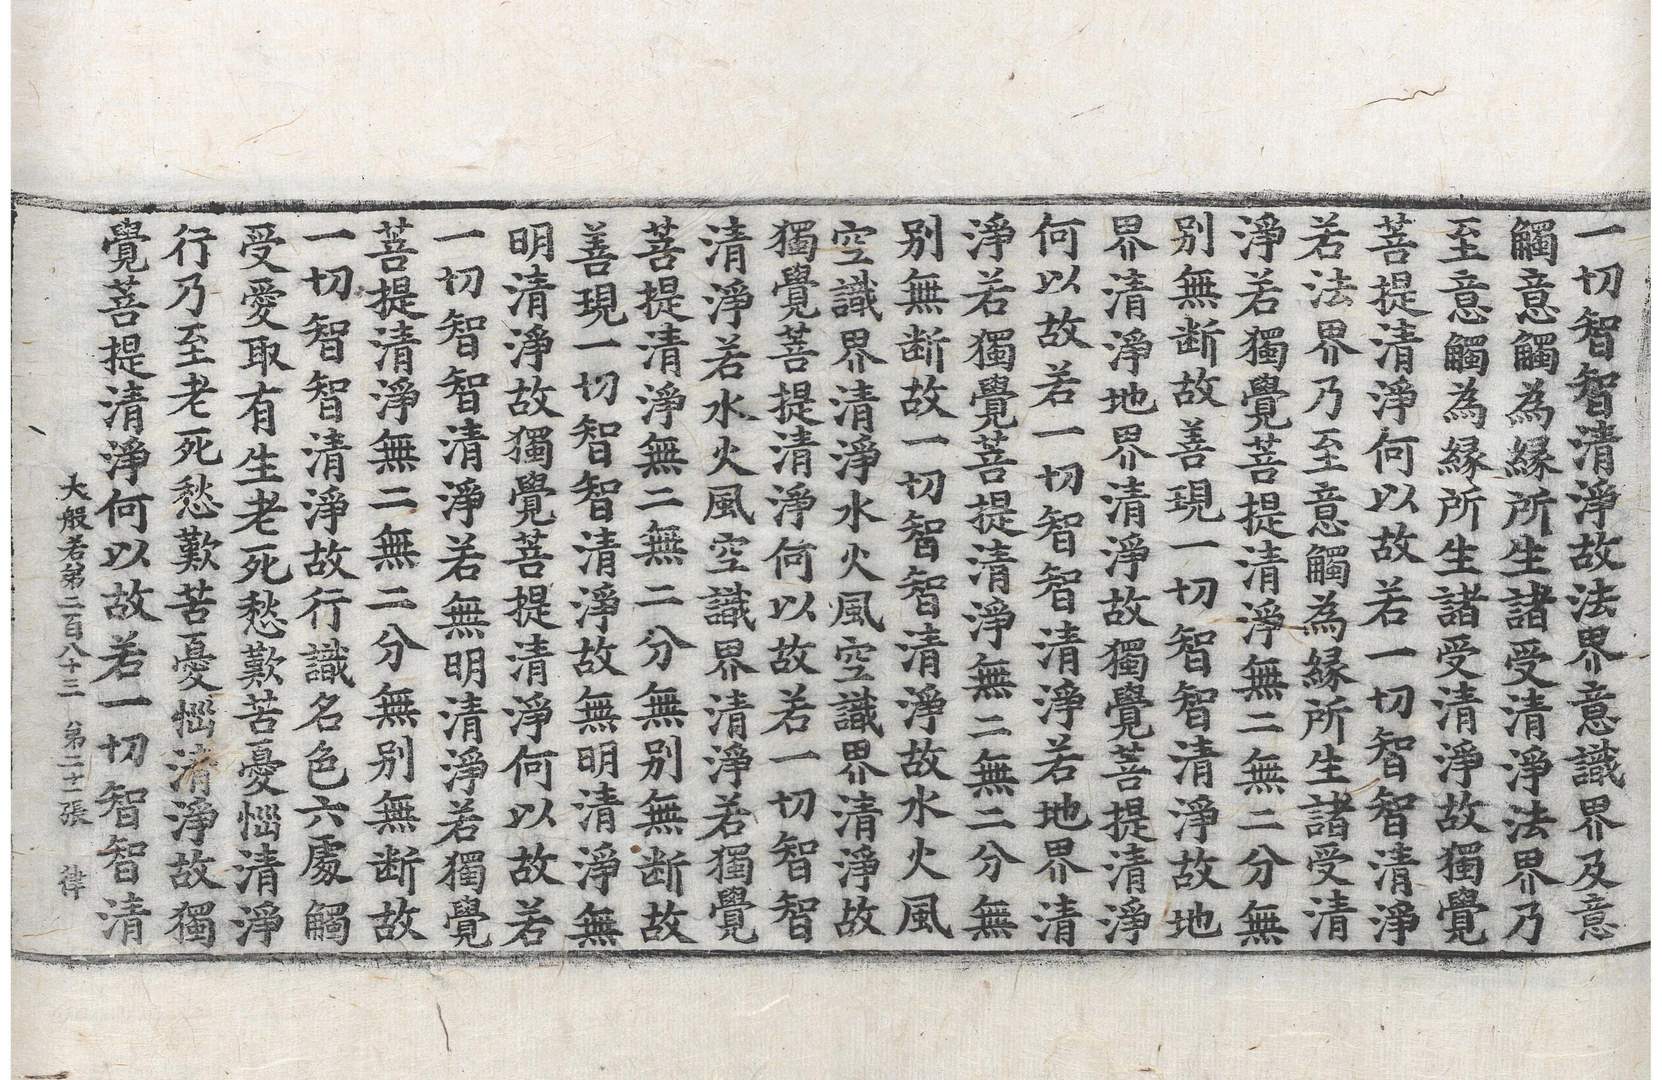 一切智智清淨故法界意識界及意
觸意觸為緣所生諸受清淨法界乃
至意觸為緣所生諸受清淨故獨覺
菩提清淨何以故若一切智智清淨
若法界乃至意觸為緣所生諸受清
淨若獨覺菩提清淨無二無二分無
别無断故善現一切智智清淨故地
界清淨地界清淨故獨覺菩提清淨
何以故若一切智智清淨若地界清
淨若獨覺菩提清淨無二無二分無
别無断故一切智智清淨故水火風
空識界清淨水火風空識界清淨故
獨覺菩提清淨何以故若一切智智
清淨若水火風空識界清淨若獨覺
菩提清淨無二無二分無别無断故
善現一切智智清淨故無明清淨無
明清淨故獨覺菩提清淨何以故若
一切智智清淨若無明清淨若獨覺
菩提清淨無二無二分無别無断故
一切智智清淨故行識名色六處觸
受愛取有生老死愁歎苦憂惱清淨
行乃至老死愁歎苦憂惱清淨故獨
覺菩提清淨何以故若一切智智清
大般若第二百八十三 第二十張 律